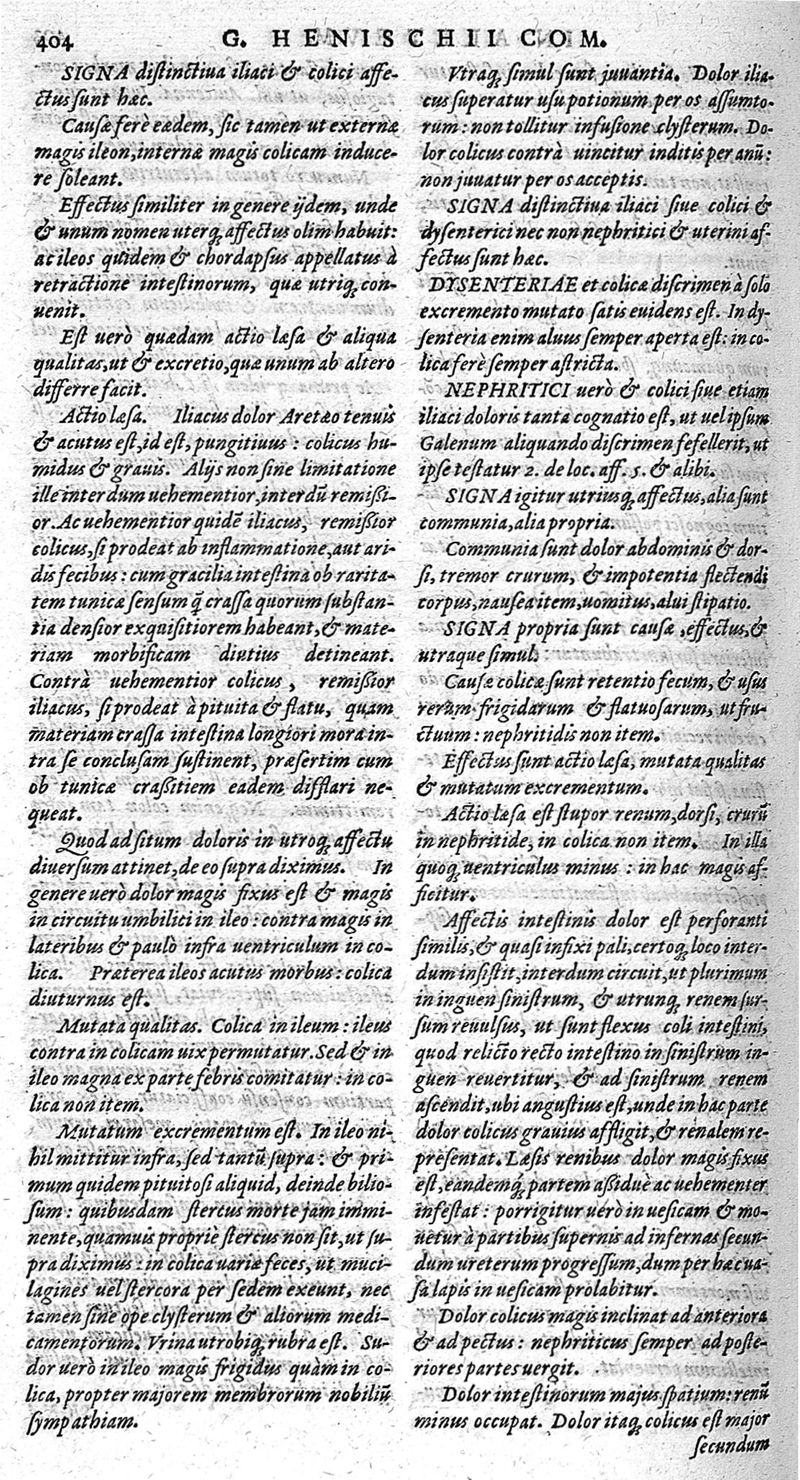 404 G. HENISCHII COM.
SIGNA distinctiua iliaci & colici affe-
ctus sunt hæc.
Causæ ferè eædem, sic tamen ut externæ
magis ileon, internæ magis colicam induce-
re soleant.
Effectus similiter in genere ijdem, unde
& unum nomen uterq; affectus olim habuit:
ac ileos quidem & chordapsus appellatus à
retractione intestinorum, quæ utriq; con-
uenit.
Est uerò quædam actio læsa & aliqua
qualitas, ut & excretio, quæ unum ab altero
differre facit.
Actio læsa. Iliacus dolor Aretæo tenuis
& acutus est, id est, pungitiuus : colicus hu-
midus & grauis. Alijs non sine limitatione
ille interdum uehementior, interdũ remißi-
or. Ac uehementior quidẽ iliacus, remißior
colicus, si prodeat ab inflammatione, aut ari-
dis fecibus : cum gracilia intestina ob rarita-
tem tunicæ sensum q̃ crassa quorum substan-
tia densior exquisitiorem habeant, & mate-
riam morbificam diutius detineant.
Contrà uehementior colicus, remißior
iliacus, si prodeat à pituita & flatu, quam
materiam crassa intestina longiori mora in-
tra se conclusam sustinent, præsertim cum
ob tunicæ craßitiem eadem difflari ne-
queat.
Quod ad situm doloris in utroq; affectu
diuersum attinet, de eo supra diximus. In
genere uerò dolor magis fixus est & magis
in circuitu umbilici in ileo : contra magis in
lateribus & paulò infra uentriculum in co-
lica. Præterea ileos acutus morbus : colica
diuturnus est.
Mutata qualitas. Colica in ileum : ileus
contra in colicam uix permutatur. Sed & in
ileo magna ex parte febris comitatur : in co-
lica non item.
Mutatum excrementum est. In ileo ni-
hil mittitur infra, sed tantũ supra : & pri-
mum quidem pituitosi aliquid, deinde bilio-
sum : quibusdam stercus morte jam immi-
nente, quamuis propriè stercus non sit, ut su-
pra diximus : in colica uariæ feces, ut muci-
lagines uel stercora per sedem exeunt, nec
tamen sine ope clysterum & aliorum medi-
camentorum. Vrina utrobiq; rubra est. Su-
dor uerò in ileo magis frigidus quàm in co-
lica, propter majorem membrorum nobiliũ
sympathiam.
Vtraq; simul sunt juuantia. Dolor ilia-
cus superatur usu potionum per os assumto-
rum : non tollitur infusione clysterum. Do-
lor colicus contrà uincitur inditis per anũ:
non juuatur per os acceptis.
SIGNA distinctiua iliaci siue colici &
dysenterici nec non nephritici & uterini af-
fectus sunt hæc.
DYSENTERIAE et colicæ discrimen à solo
excremento mutato satis euidens est. In dy-
senteria enim aluus semper aperta est: in co-
lica ferè semper astricta.
NEPHRITICI uerò & colici siue etiam
iliaci doloris tanta cognatio est, ut uel ipsum
Galenum aliquando discrimen fefellerit, ut
ipse testatur 2. de loc. aff. 5. & alibi.
SIGNA igitur utriusq; affectus, alia sunt
communia, alia propria.
Communia sunt dolor abdominis & dor-
si, tremor crurum, & impotentia flectendi
corpus, nausea item, uomitus, alui stipatio.
SIGNA propria sunt causæ, effectus, &
utraque simul.
Causæ colicæ sunt retentio fecum, & usus
rerum frigidarum & flatuosarum, ut fru-
ctuum: nephritidis non item.
Effectus sunt actio læsa, mutata qualitas
& mutatum excrementum.
Actio læsa est stupor renum, dorsi, crurũ
in nephritide, in colica non item. In illa
quoq; uentriculus minus : in hac magis af-
ficitur.
Affectis intestinis dolor est perforanti
similis, & quasi infixi pali, certoq; loco inter-
dum insistit, interdum circuit, ut plurimum
in inguen sinistrum, & utrunq; renem sur-
sum reuulsus, ut sunt flexus coli intestini,
quod relicto recto intestino in sinistrum in-
guen reuertitur, & ad sinistrum renem
ascendit, ubi angustius est, unde in hac parte
dolor colicus grauius affligit, & renalem re-
præsentat. Læsis renibus dolor magis fixus
est, eandemq; partem aßiduè ac uehementer
infestat : porrigitur uerò in uesicam & mo-
uetur à partibus supernis ad infernas secun-
dum ureterum progressum, dum per hæc ua-
sa lapis in uesicam prolabitur.
Dolor colicus magis inclinat ad anteriora
& ad pectus : nephriticus semper ad poste-
riores partes uergit.
Dolor intestinorum majus spatium: renũ
minus occupat. Dolor itaq; colicus est major
secundum